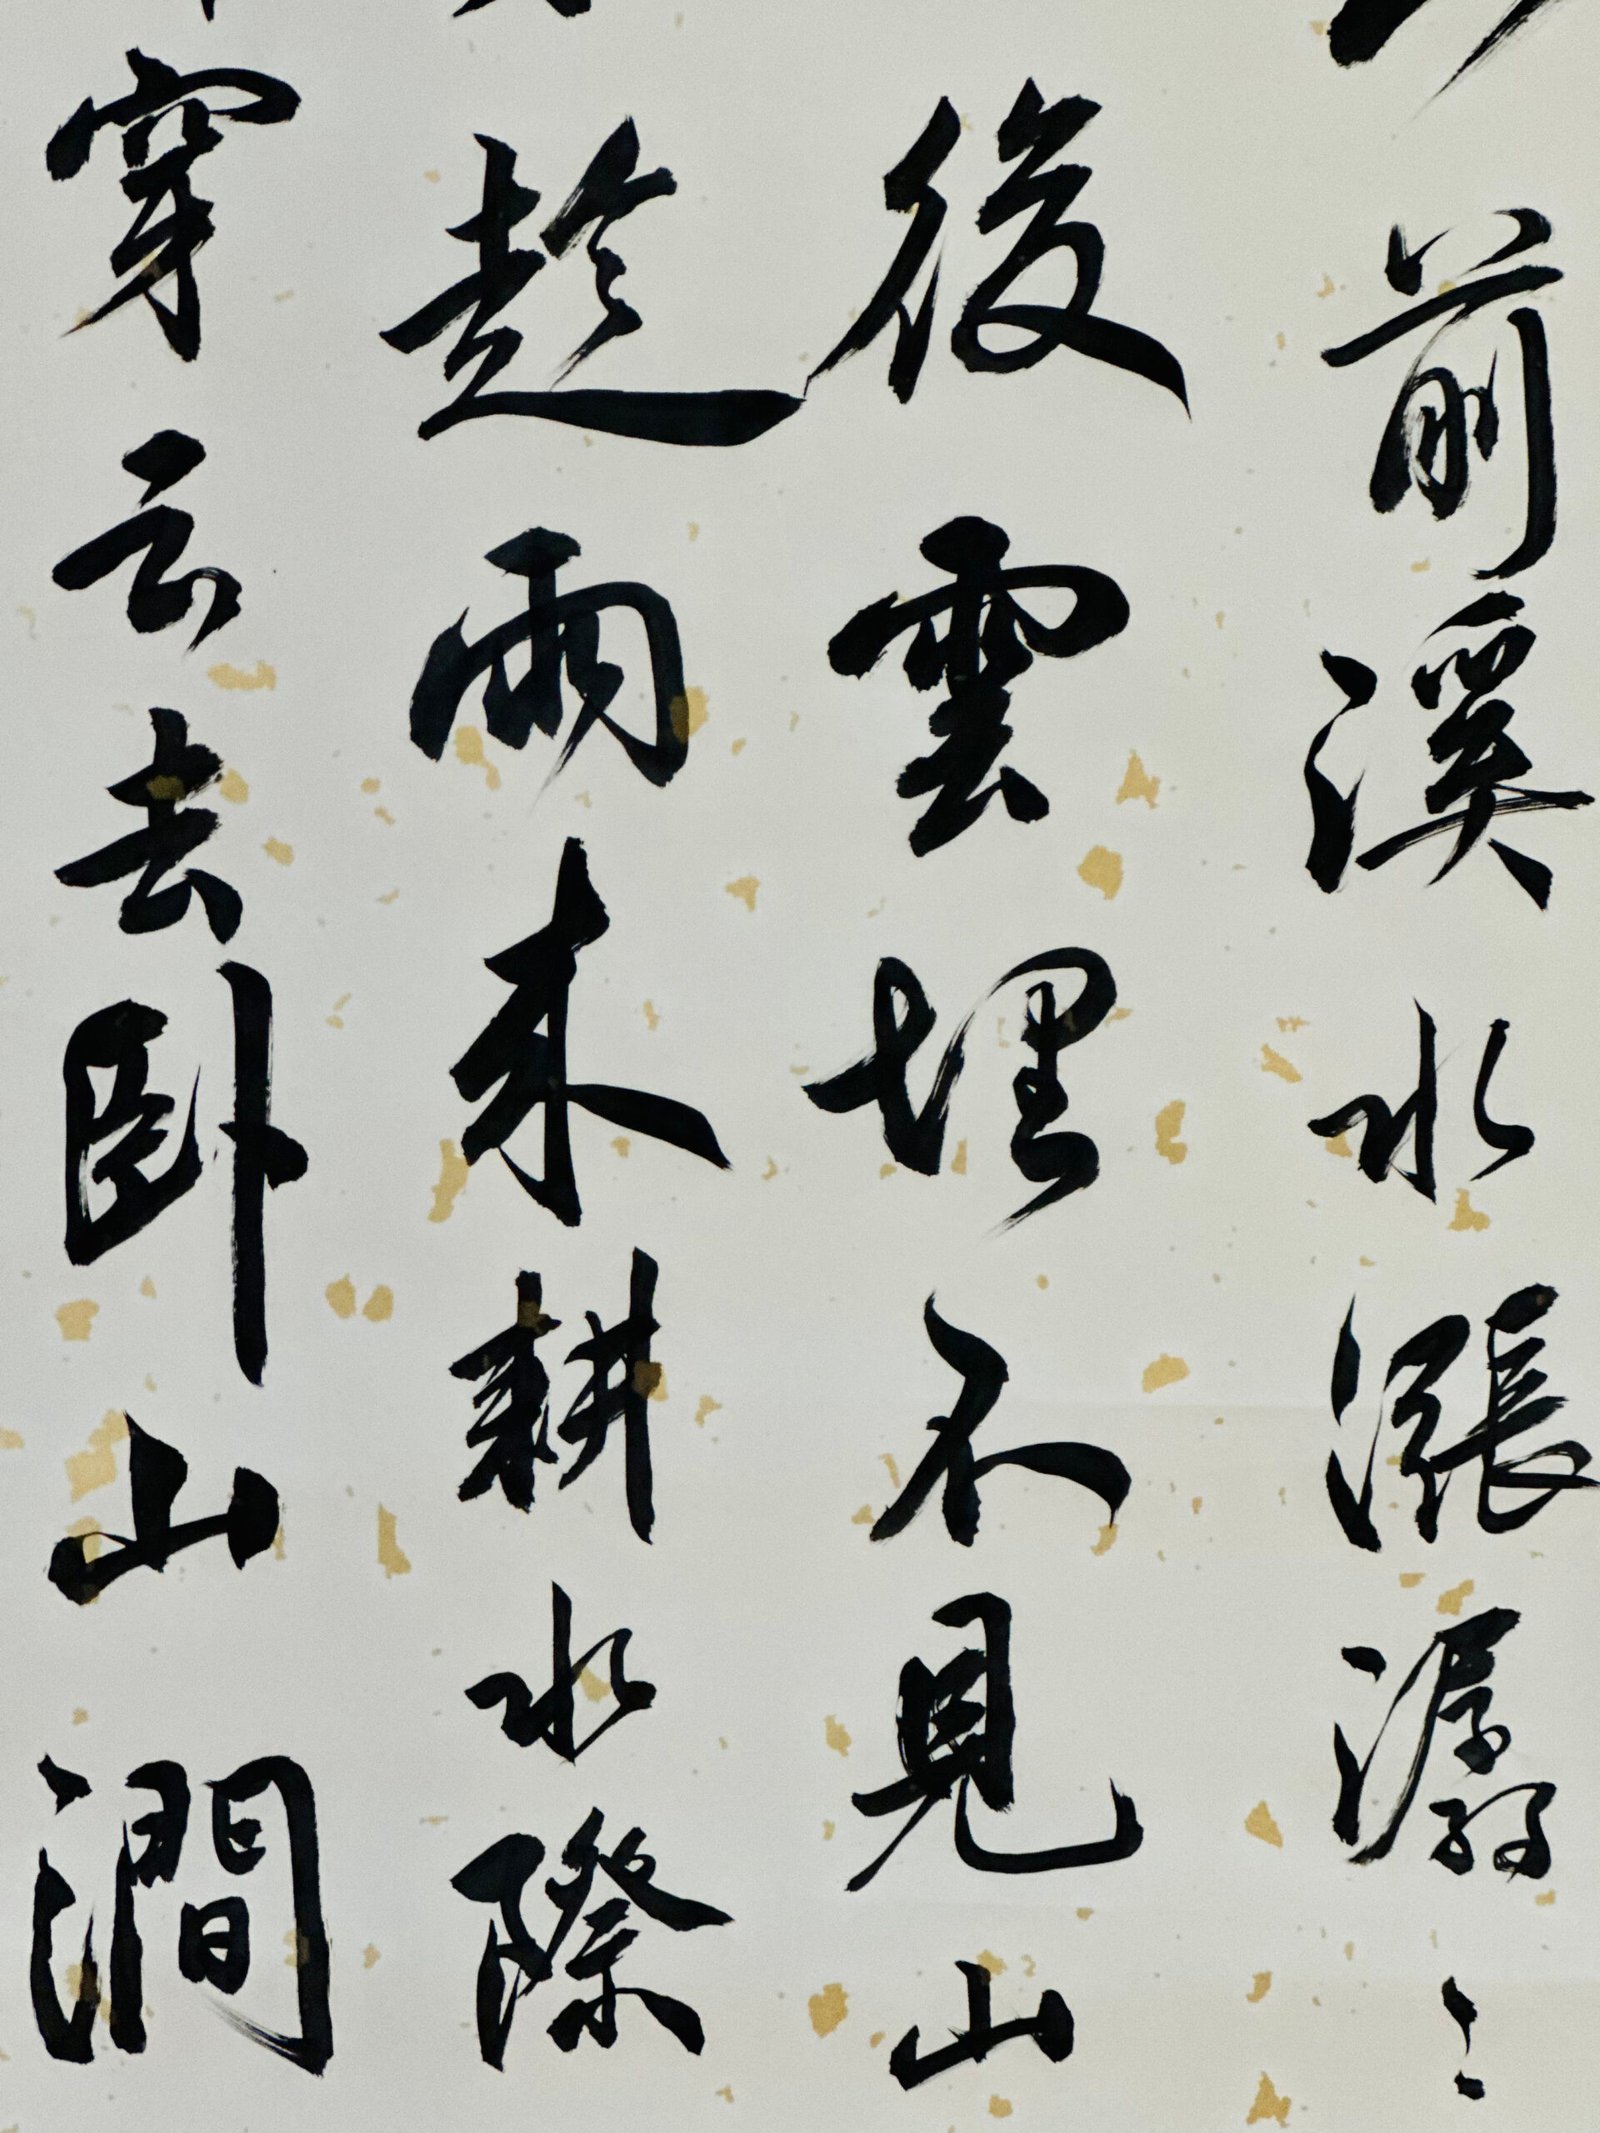 前溪水漲潺〻
後雲埋不見山
趁雨來耕水際
穿云去臥山澗